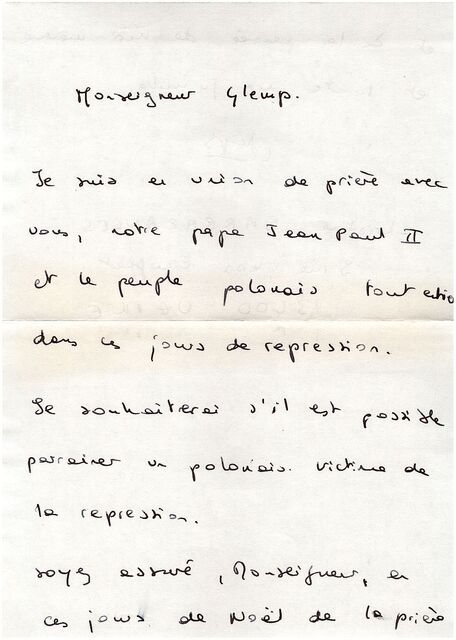 Monseigneur Glemp.
Je suis en union de prière avec
vous, notre pape Jean Paul II
et le peuple polonais tout entier
dans ces jours de repression.
Je souhaiterai s'il est possible
parrainer un polonais victime de
la repression.
soyez assuré, Monseigneur, en
ces jours de Noël de la prière